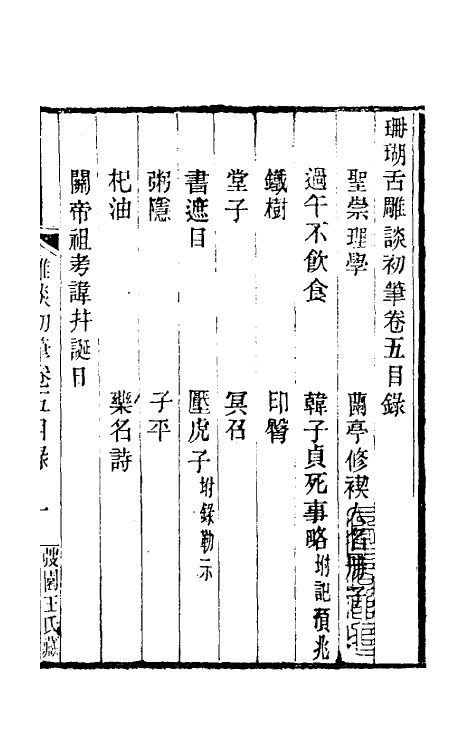 珊瑚舌雕談初筆卷五目錄
聖崇理學　蘭亭修禊人名册子
過午不飲食　韓子貞死事略附記預兆
鐵樹　印臀
堂子　冥召
書遮目　壓虎子附錄勒示
粥隱　子平
杞油　藥名詩
關帝祖考諱幷誕日
雕談初筆卷五目錄　一　弢園王氏藏